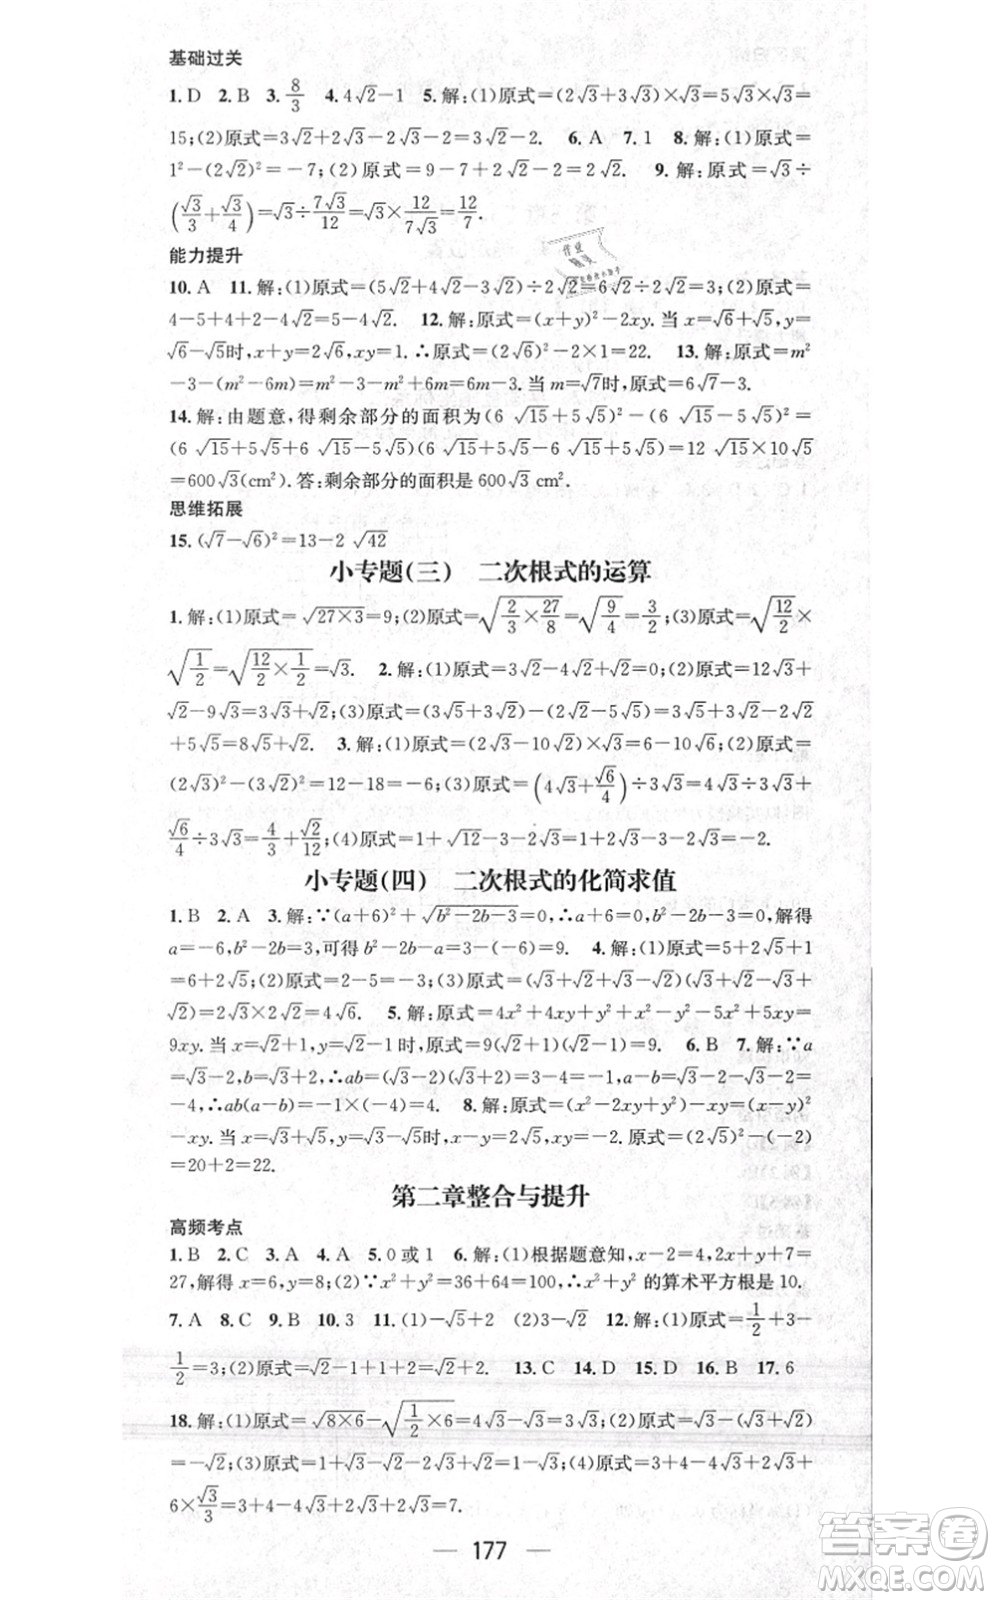 基础过关
1.D 2.B 3.8/3 4.4√2-1 5.解:(1)原式=(2√3+3√3)×√3=5√3×√3=
15;(2)原式=3√2+2√3-2√2-√3=√3-2. 6.A 7.1 8.解:(1)原式=
1²-(2√2)²=-7;(2)原式=9-7+2√2-2=2√2. 9.解:原式=√3÷
(√3/3+√3/4)=√3÷7√3/12=√3×12/7√3=12/7.
能力提升
10.A 11.解:(1)原式=(5√2+4√2-3√2)÷2√2=6√2÷2√2=3;(2)原式=
4-5+4+2-4√2=5-4√2. 12.解:原式=(x+y)²-2xy.当x=√6+√5,y=
√6-√5时,x+y=2√6,xy=1.∴原式=(2√6)²-2×1=22. 13.解:原式=m²
-3-(m²-6m)=m²-3-m²+6m=6m-3.当m=√7时,原式=6√7-3.
14.解:由题意,得剩余部分的面积为(6√15+5√5)²-(6√15-5√5)²=
(6√15+5√5+6√15-5√5)(6√15+5√5-6√15+5√5)=12√15×10√5
=600√3(cm²).答:剩余部分的面积是600√3 cm².
思维拓展
15.(√7-√6)²=13-2√42
小专题(三) 二次根式的运算
1.解:(1)原式=√27×3=9;(2)原式=√2/3×27/8=√9/4=3/2;(3)原式=√12/√2×
√1/2=√12/2×1/2=√3. 2.解:(1)原式=3√2-4√2+√2=0;(2)原式=12√3+
√2-9√3=3√3+√2;(3)原式=(3√5+3√2)-(2√2-5√5)=3√5+3√2-2√2
+5√5=8√5+√2. 3.解:(1)原式=(2√3-10√2)×√3=6-10√6;(2)原式=
(2√3)²-(3√2)²=12-18=-6;(3)原式=(4√3+√6/4)÷3√3=4√3÷3√3+
√6/4÷3√3=4/3+√2/12;(4)原式=1+√12-3-2√3=1+2√3-3-2√3=-2.
小专题(四) 二次根式的化简求值
1.B 2.A 3.解:∵(a+6)²+√b²-2b-3=0,∴a+6=0,b²-2b-3=0,解得
a=-6,b²-2b=3,可得b²-2b-a=3-(-6)=9. 4.解:(1)原式=5+2√5+1
=6+2√5;(2)原式=2-5=-3;(3)原式=(√3+√2+√3-√2)(√3+√2-√3+
√2)=2√3×2√2=4√6. 5.解:原式=4x²+4xy+y²+x²-y²-5x²+5xy=
9xy.当x=√2+1,y=√2-1时,原式=9(√2+1)(√2-1)=9. 6.B 7.解:∵a
=√3-2,b=√3+2,∴ab=(√3-2)(√3+2)=-1,a-b=√3-2-√3-2=
-4,∴ab(a-b)=-1×(-4)=4. 8.解:原式=(x²-2xy+y²)-xy=(x-y)²
-xy.当x=√3+√5,y=√3-√5时,xy=-2.原式=(2√5)²-(-2)
=20+2=22.
第二章整合与提升
高频考点
1.B 2.C 3.A 4.A 5.0或1 6.解:(1)根据题意知,x-2=4,2x+y+7=
27,解得x=6,y=8;(2)∵x²+y²=36+64=100,∴x²+y²的算术平方根是10.
7.A 8.C 9.B 10.3 11.(1)-√5+2 (2)3-√2 12.解:(1)原式=1/2+3-
1/2=3;(2)原式=√2-1+1+2=√2+2. 13.C 14.D 15.D 16.B 17.6
18.解:(1)原式=√8×6-√1/2×6=4√3-√3=3√3;(2)原式=√3-(√3+√2)
=-√2;(3)原式=3+4-4√3+2√3=7-2√3;(4)原式=3+4-4√3+4-4+
6×√3/3=3+4-4√3+4√3-2√3+2√3=7.
177
答案圈
MXQE.COM